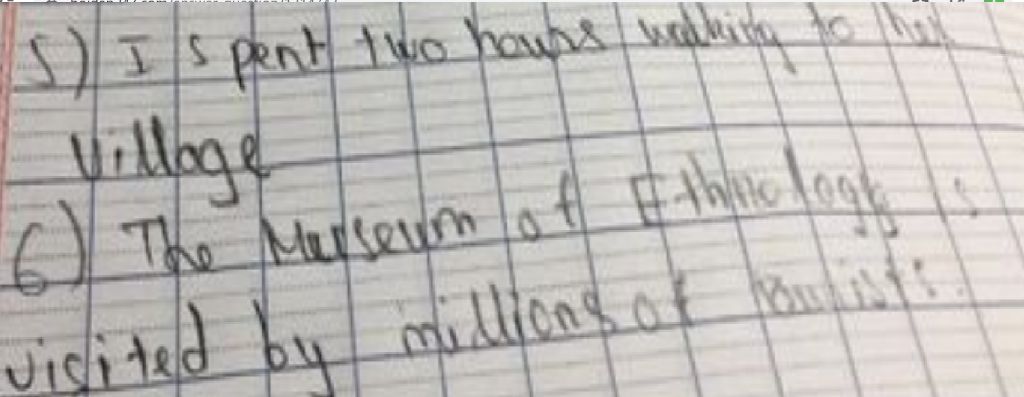 5) I spent two hours walking to her
village
6) The Musseum of Ethnology is
visited by millions of tourists.